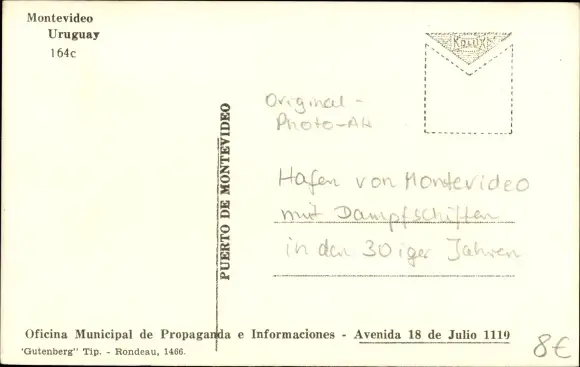 Montevideo
Uruguay
164c
KOLUX
Original-
Photo-AK
PUERTO DE MONTEVIDEO
Hafen von Montevideo
mit Dampfschiffen
in den 30iger Jahren
Oficina Municipal de Propaganda e Informaciones - Avenida 18 de Julio 1119
'Gutenberg" Tip. - Rondeau, 1466.
8€